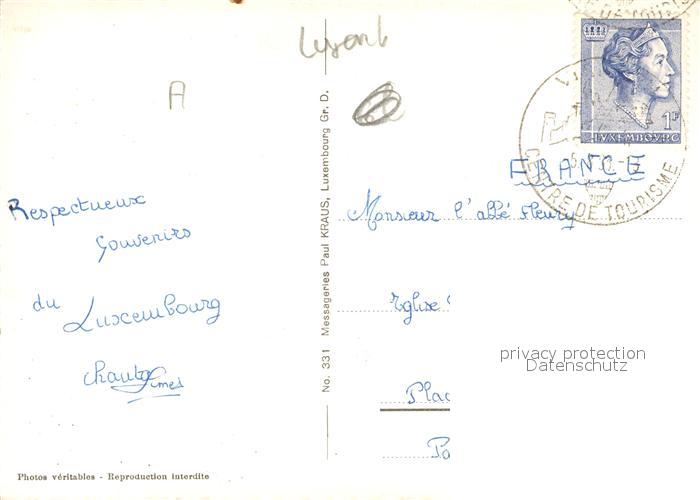 A
Respectueux
Souvenirs
du
Luxembourg
Photos véritables - Reproduction interdite
No. 331 Messageries Paul KRAUS, Luxembourg Gr. D.
1F
LUXEMBOURG
CENTRE DE TOURISME
FRANCE
Monsieur l'abbé Fleury
Eglise
Plac
Pa
privacy protection
Datenschutz